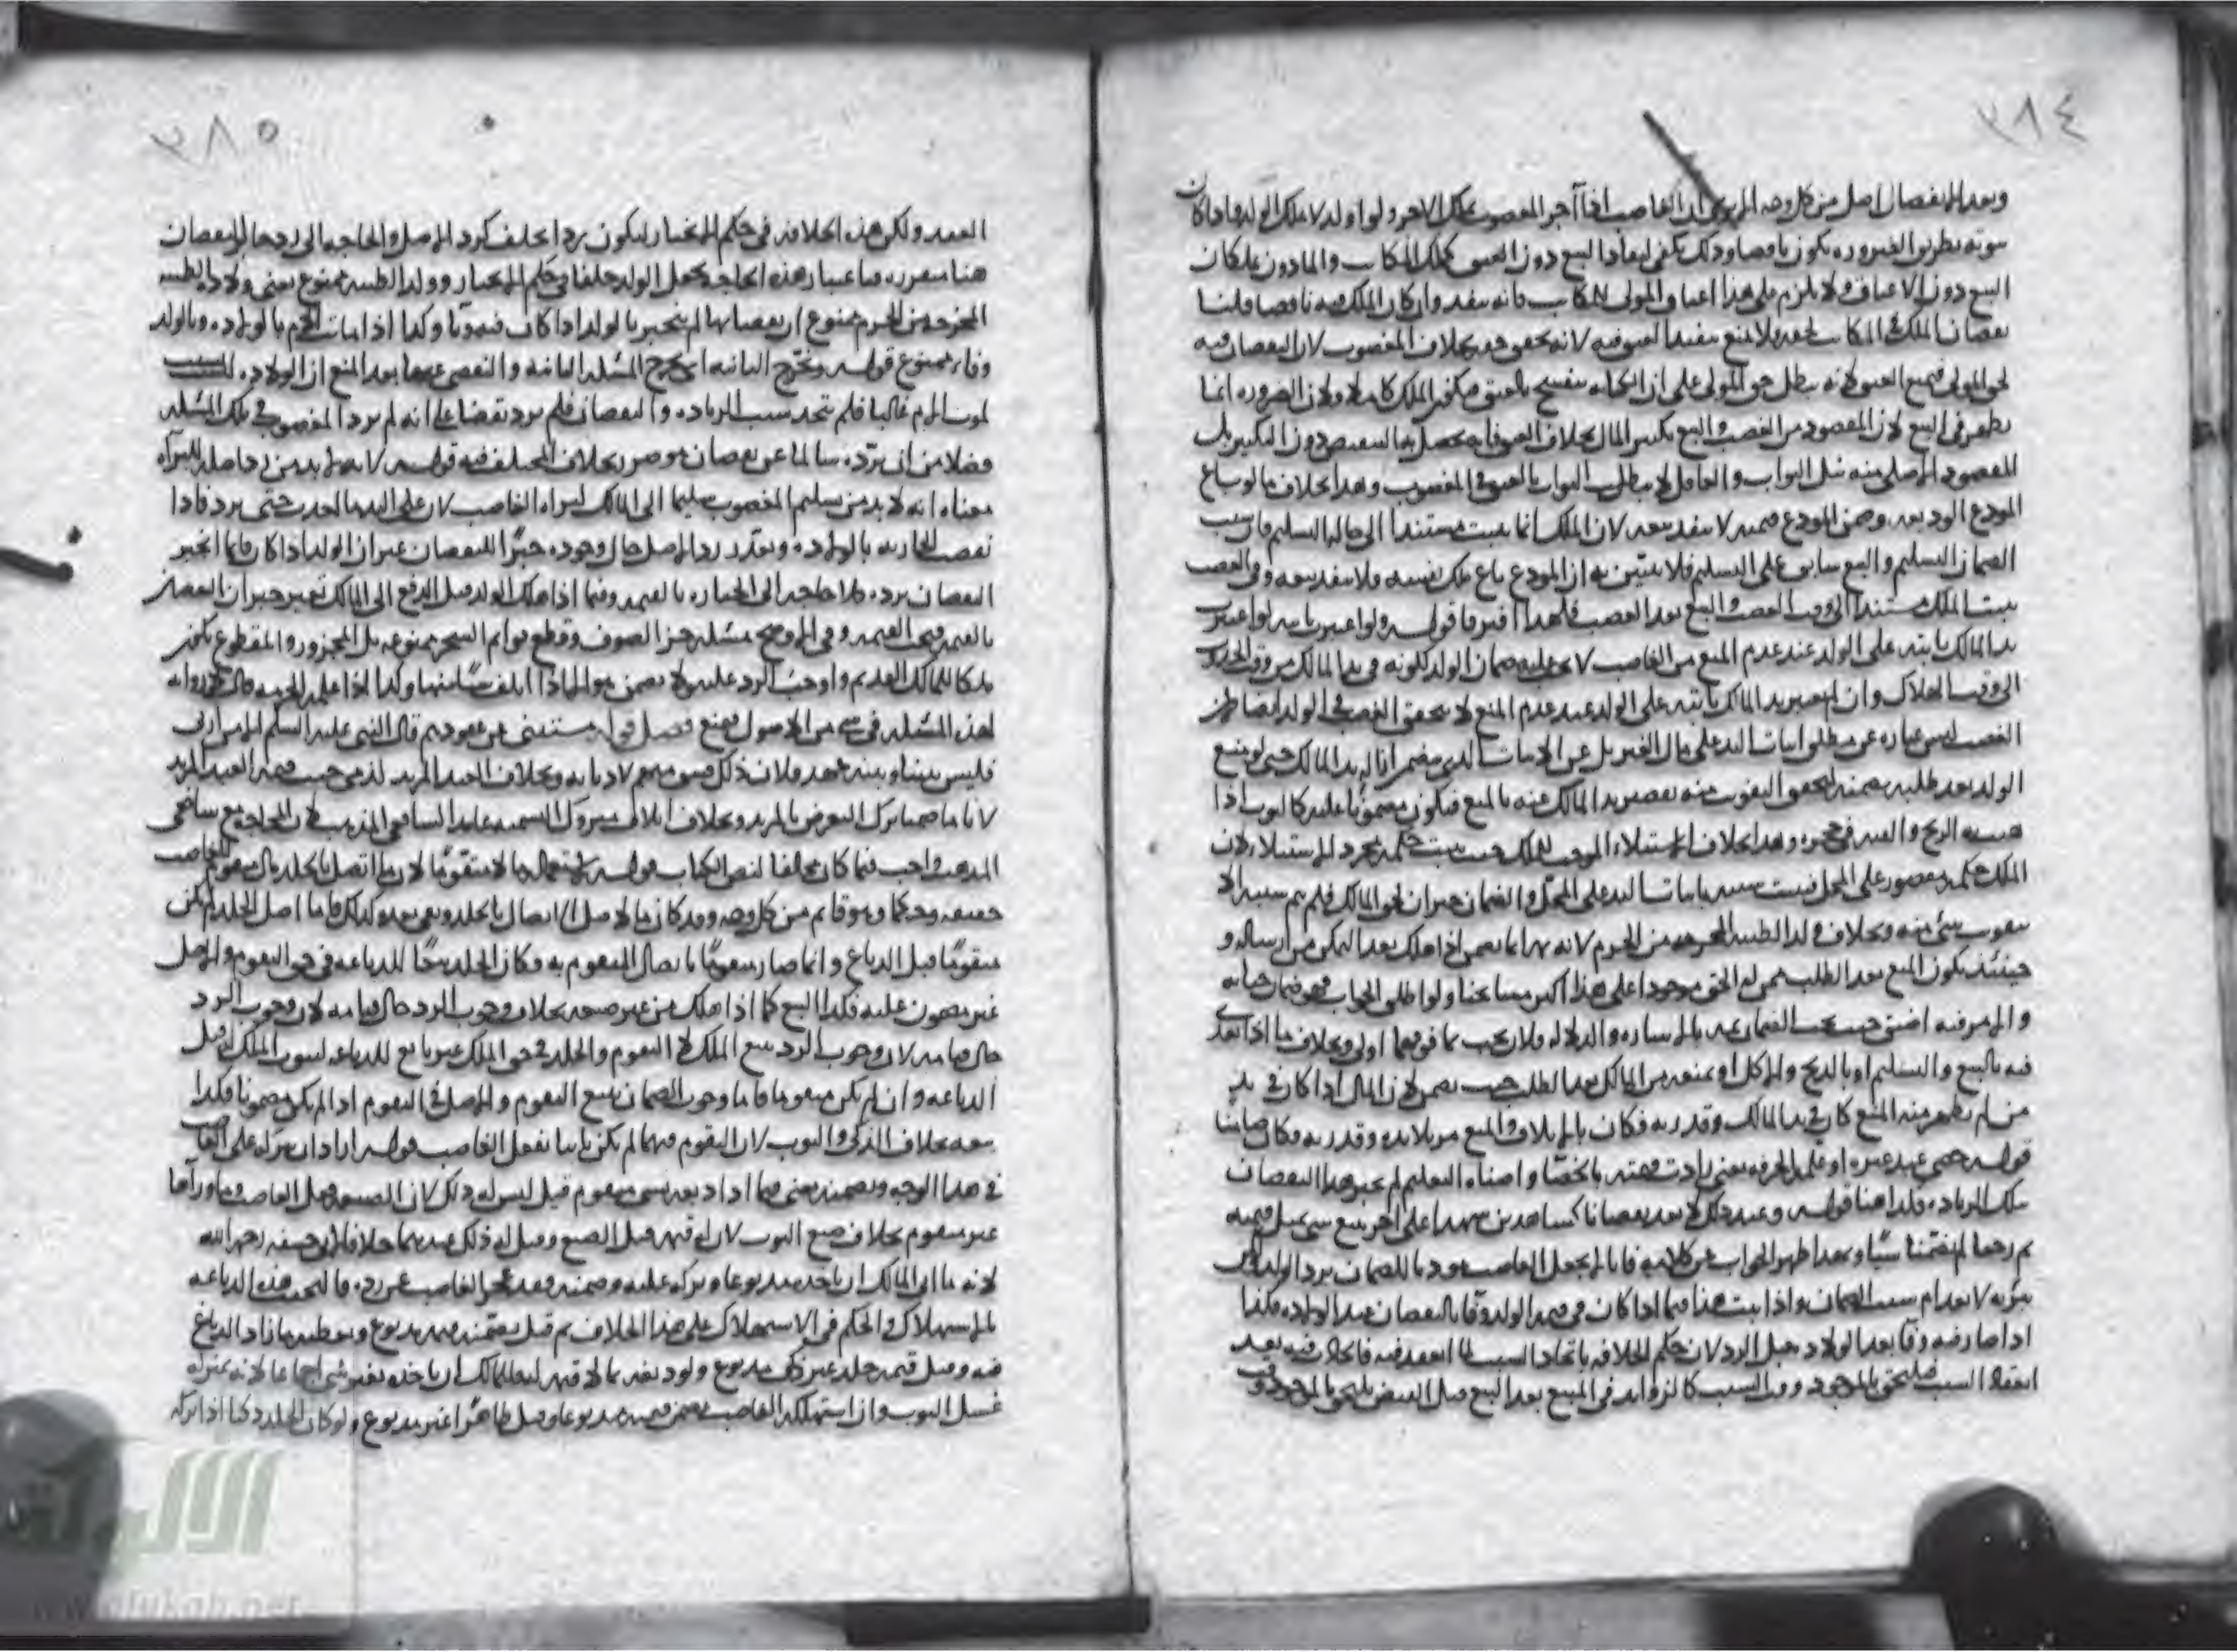 ٢٨٤
وبعد الانفصال اصل من كل وجه الا يرى ان الغاصب اذا آجر المغصوب يملك الاجر ولو اولد لا يملك الولد واذا كان
ثبوته بطريق الضرورة يكون ناقصا وذلك يكفي لنفاذ البيع دون العتق كملك المكاتب والماذون يملكان
البيع دون الاعتاق ولا يلزم على هذا اعتاق المولى المكاتب فانه ينفد وان كان الملك فيه ناقصا قلنا
نقصان الملك في المكاتب لحقه فلا يمنع نفيذ العتق فيه لانه تحقق حقه بخلاف المغصوب لان النقصان فيه
لحق المولى فيمنع العتق لانه يبطل حق المولى على ان الكتابة تنفسخ بالعتق فيكون الملك كاملا ولان الضرورة انما
يظهر في البيع لان المقصود من الغصب والبيع تكثير المال بخلاف العتق فانه يحصل به التنقيص دون التكثير بل
المقصود الاصلي منه نيل الثواب والعاقل لا يطلب الثواب بالعتق في المغصوب وهذا بخلاف ما لو باع
المودع الوديعة وضمن المودع قيمته لا ينفد بيعه لان الملك انما يثبت مستندا الى حالة التسليم فان سبب
الضمان التسليم والبيع سابق على التسليم فلا يتبين به ان المودع باع ملك نفسه ولا ينفد بيعه وفي الغصب
يثبت الملك مستندا الى وقت الغصب والبيع بعد الغصب فلهذا افترقا قوله ولو اعتبر ثابته لو اعتبرت
يد المالك ثابتة على الولد عند عدم المنع من الغاصب لا يجب عليه ضمان الولد لكونه في يد المالك من وقت الحدوث
الى وقت الهلاك وان لم يعتبر يد المالك ثابتة على الولد عند عدم المنع لا يتحقق الغصب في الولد ايضا لان
الغصب ليس عبارة عن مطلق اثبات اليد على مال الغير بل عن الاثبات الذي يتضمن ازالة يد المالك حتى لو منع
الولد بعد طلبه يضمنه لتحقق التفويت منه بقصر يد المالك عنه بالمنع فيكون مضمونا عليه كالثوب اذا
هبت به الريح والقته في حجره وهذا بخلاف الاستيلاء الموجب للملك حيث يثبت حكمه بمجرد الاستيلاء لان
الملك حكم مقصور على المحل فيثبت بسببه باثبات اليد على المحل والضمان جبران لحق المالك فلم يتم سببه الا
بتفويت شيء منه وبخلاف ولد الظبية المخرجة من الحرم لانه انما يضمن اذا هلك بعد التمكن من ارساله و
حينئذ يكون المنع بعد الطلب ممن له الحق موجودا على هذا اكثر مشايخنا ولو اطلق الجواب فهو ضمان جناية
والامر فيه اضيق حيث يجب الضمان فيه بالاشارة والدلالة ولان يجب بما فوقهما اولى وبخلاف ما اذا تعدى
فيه بالبيع والتسليم او بالذبح والاكل او يمنعه من المالك بعد الطلب حيث يضمن لان المال اذا كان في يد
من لم يظهر منه المنع كان في يد المالك وقدرته فكان بالاتلاف والمنع مزيلا يده وقدرته فكان ضامنا
قوله خصى عبد غيره او علمه الحرفة يعني زادت قيمته بالخصا واضناه التعليم لم يجبر هذا النقصان
بتلك الزيادة ولذا هنا قوله وعند ذلك لا يعد نقصانا كشاهدين شهدا على آخر ببيع شيء بمثل قيمته
ثم رجعا لم يضمنا شيا وبهذا ظهر الجواب عن كلامه فانا لم يجعل الغاصب مؤديا للضمان برد الولد بل
تبرئه لانعدام سبب الضمان واذا ثبت هذا فيما اذا كان في قيمة الولد وفا بالنقصان عند الولادة فكذا
اذا صار فيه وفا بعد الولادة قبل الرد لان حكم الخلافة باتحاد السبب لما انعقد فيه فالحادث فيه بعد
انعقاد السبب يلتحق بالموجود وقت السبب كالزوايد في المبيع بعد البيع قبل القبض يلتحق بالموجود وقت
٢٨٥
العقد ولكن هذه الخلافة في حكم الانجبار ليكون رد الخلف كرد الاصل والحاجة الى ردهما النقصان
هنا متقررة فباعتبار هذه الحاجة يجعل الولد خلفا في حكم الانجبار وولد الظبية ممنوع يعني ولادة الظبية
المخرجة من الحرم ممنوع ان نقصانها لم ينجبر بالولد اذا كان قيمته وكذا اذا ماتت الام بالولادة وبالولد
وفاء ممنوع قوله وتخرج الثانية اي تخرج المسئلة الثانية والتفصي عنها بعد المنع ان الولادة ليست
لموت الام غالبا فلم يتحد سبب الزيادة والنقصان فلم يرد نقضا على انه لم يرد المغصوب في تلك المسئلة
فضلا من ان يرده سالما عن نقصان بخلاف المختلف فيه قوله لا بد من رد اصله للبراءة
معناه انه لا بد من تسليم المغصوب سليما الى المالك لبراءة الغاصب لان على اليد ما اخذت حتى ترد فاذا
نقصت الجارية بالولادة وتعذر رد الاصل حال وجوده جبرا للنقصان غير ان الولد اذا كان قايما انجبر
النقصان برده فلا حاجة الى الجبارة بالقيمة وفيما اذا هلك الولد قبل الدفع الى المالك تعين جبران النقصان
بالقيمة فيجب القيمة وفي الايضاح مسئلة جز الصوف وقطع قوايم الشجر ممنوعة بل المجزور والمقطوع يكون
ملكا للمالك القديم واوجب الرد عليه ولا يضمن هو الا اذا اتلف شيا منها وكذا اذا علم الحرفة قال لا رواية
لهذه المسئلة في شيء من الاصول فيمنع فصل قوله مستثنى عن عهودهم قال النبي عليه السلم الا من اربى
فليس بيننا وبينه عهد ولان ذلك فسق منهم لا ديانة وبخلاف العبد المرتد لذمي حيث قيمة العبد المرتد
لانا ما ضمنا ترك التعرض بالمرتد وبخلاف اتلاف متروك التسمية عامدا الشافعي المذهب لان المحاجة مع شافعي
المذهب واجب فيما كان مخالفا لنص الكتاب قوله استعمال ما لا متقوما لان ما اتصل بالجلد مال متقوم للغاصب
حقيقة وحكما وهو قايم من كل وجه وقد كان مالا اصلا للاتصال بالجلد وبقي بعده كذلك فاما اصل الجلد لم يكن
متقوما قبل الدباغ وانما صار متقوما باتصال المتقوم به فكان الجلد تبعا للدباغة في حق التقوم والاصل
غير مضمون عليه فكذا التبع كما اذا هلك من غير صنعه بخلاف وجوب الرد حال قيامه لان وجوب الرد
حال قيامه لان وجوب الرد يتبع الملك لا التقوم والجلد في حق الملك غير تابع للدباغة لثبوت الملك قبل
الدباغة وان لم يكن متقوما فاما وجوب الضمان يتبع التقوم والاصل في التقوم اذا لم يكن مضمونا فكذا
تبعه بخلاف الذكي والثوب لان التقوم فيهما لم يكن ثابتا بفعل الغاصب قوله اراد ان يتركه على الغاصب
في هذا الوجه ويضمنه يعني فيما اذا دبغه بشيء متقوم قيل ليس له ذلك لان الصنعة فعل الغاصب وما وراها
غير متقوم بخلاف صبغ الثوب لان له قيمة قبل الصبغ وقيل له ذلك عندهما خلافا لابي حنيفة رحمه الله
لانه لما ابى المالك ان ياخذه مدبوغا وتركه عليه وضمنه فقد عجز الغاصب عن رده فالتحقت هذه الدباغة
بالاستهلاك والحكم في الاستهلاك على هذا الخلاف ثم قيل يضمنه قيمة مدبوغ ويعطيه ما زاد الدباغ
فيه وقيل قيمة جلد غير ذكي مدبوغ ولو دبغه بما لا قيمة له فللمالك ان ياخذه بغير شيء اجماعا لانه بمنزلة
غسل الثوب وان استهلكه الغاصب يضمن قيمته مدبوغا وقيل طاهرا غير مدبوغ ولو كان الجلد ذكيا اذا تركه